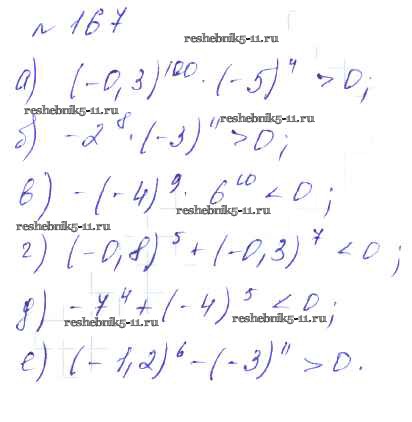 № 167
reshebnik5-11.ru
а) (-0,3)¹⁰⁰ · (-5)⁴ > 0;
reshebnik5-11.ru reshebnik5-11.ru
б) -2⁸ · (-3)¹¹ > 0;
в) -(-4)⁹ · 6¹⁰ < 0;
reshebnik5-11.ru
reshebnik5-11.ru
г) (-0,8)⁵ + (-0,3)⁷ < 0;
д) -7⁴ + (-4)⁵ < 0;
reshebnik5-11.ru reshebnik5-11.ru
е) (-1,2)⁶ - (-3)¹¹ > 0.